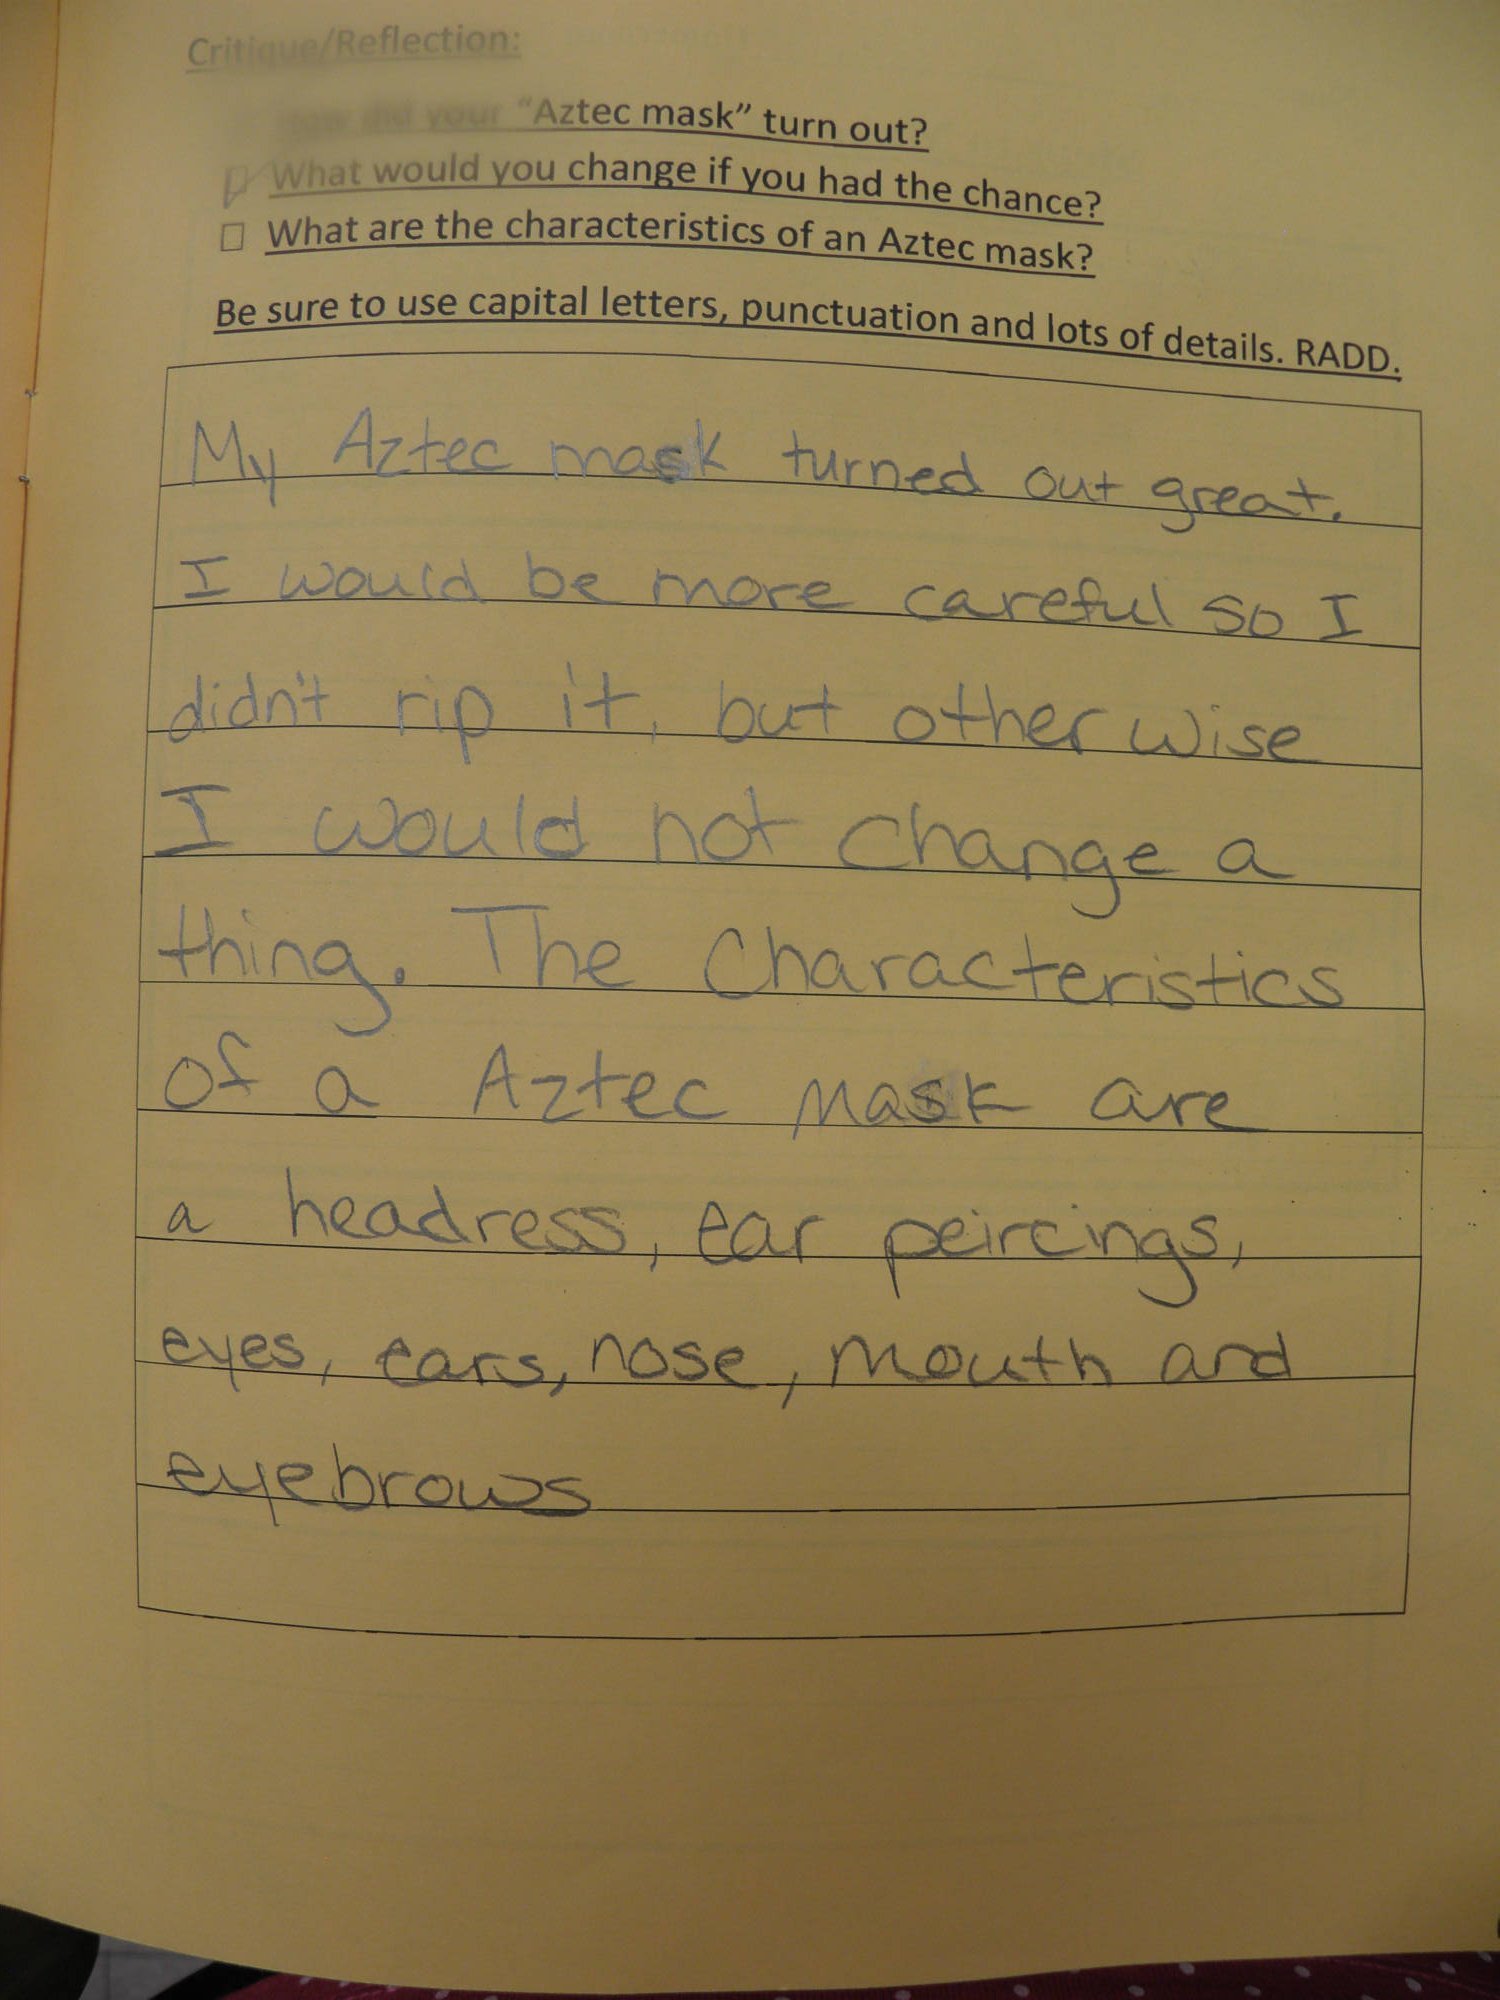 Critique/Reflection:
How did your "Aztec mask" turn out?
What would you change if you had the chance?
What are the characteristics of an Aztec mask?
Be sure to use capital letters, punctuation and lots of details. RADD.
My Aztec mask turned out great.
I would be more careful so I
didn't rip it, but other wise
I would not change a
thing. The Characteristics
of a Aztec mask are
a headress, ear peircings,
eyes, ears, nose, mouth and
eyebrows